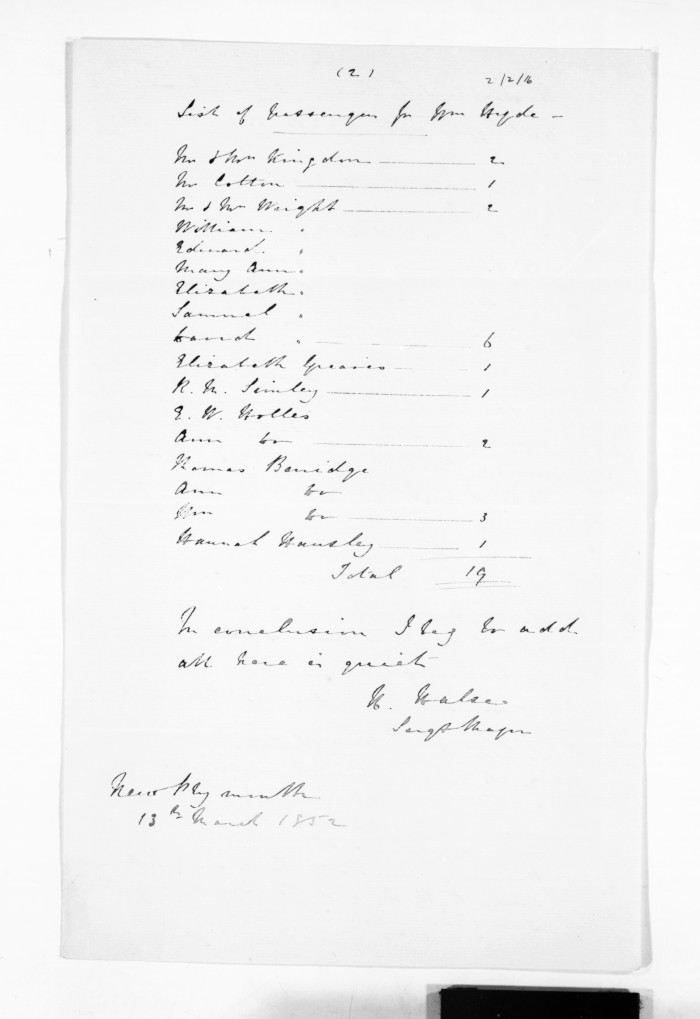 (2)
2/2/16
List of Passengers for Wm Hyde —
Mr & Mrs Kingdon — 2
Mr Colton — 1
Mr & Mrs Wright — 2
William "
Edward "
Mary Ann "
Elizabeth "
Samuel "
David " — 6
Elizabeth Greaves — 1
R. N. — 1
E. W. Holles
Ann Do — 2
Thomas Berridge
Ann Do
Wm Do — 3
Hannah Hansley — 1
Total 19
In conclusion I beg to add
all here is quiet
H. Halse
Sergt Major
New Plymouth
13th March 1852